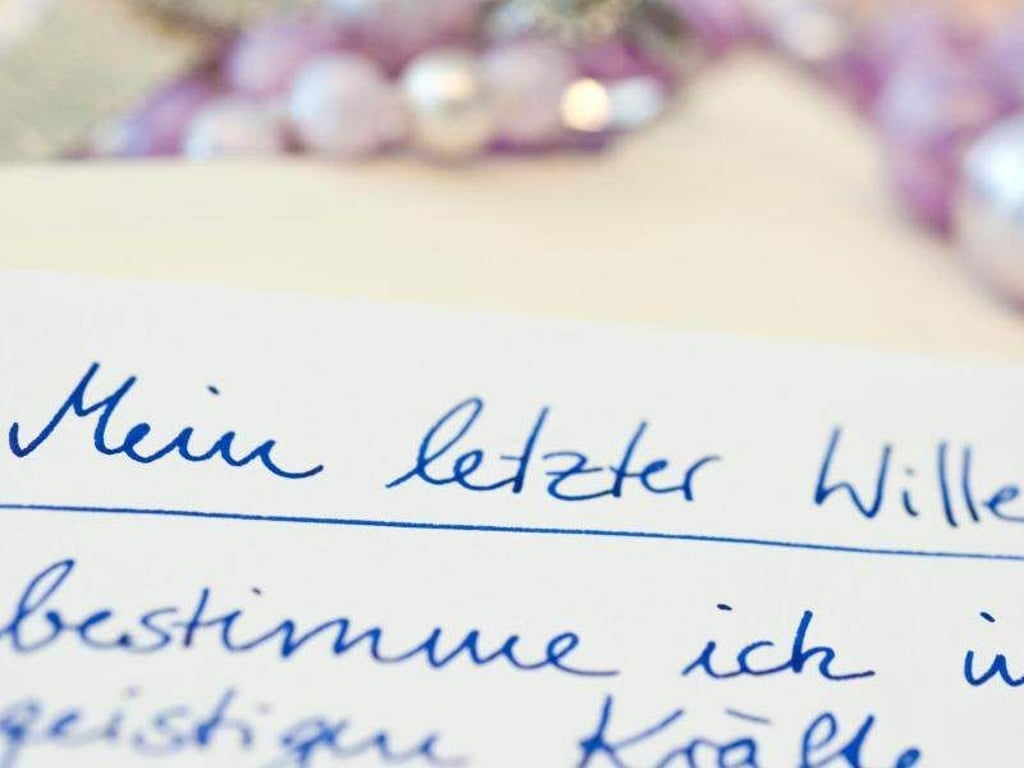 Mein letzter Wille
bestimme ich
geistigen Kräfte